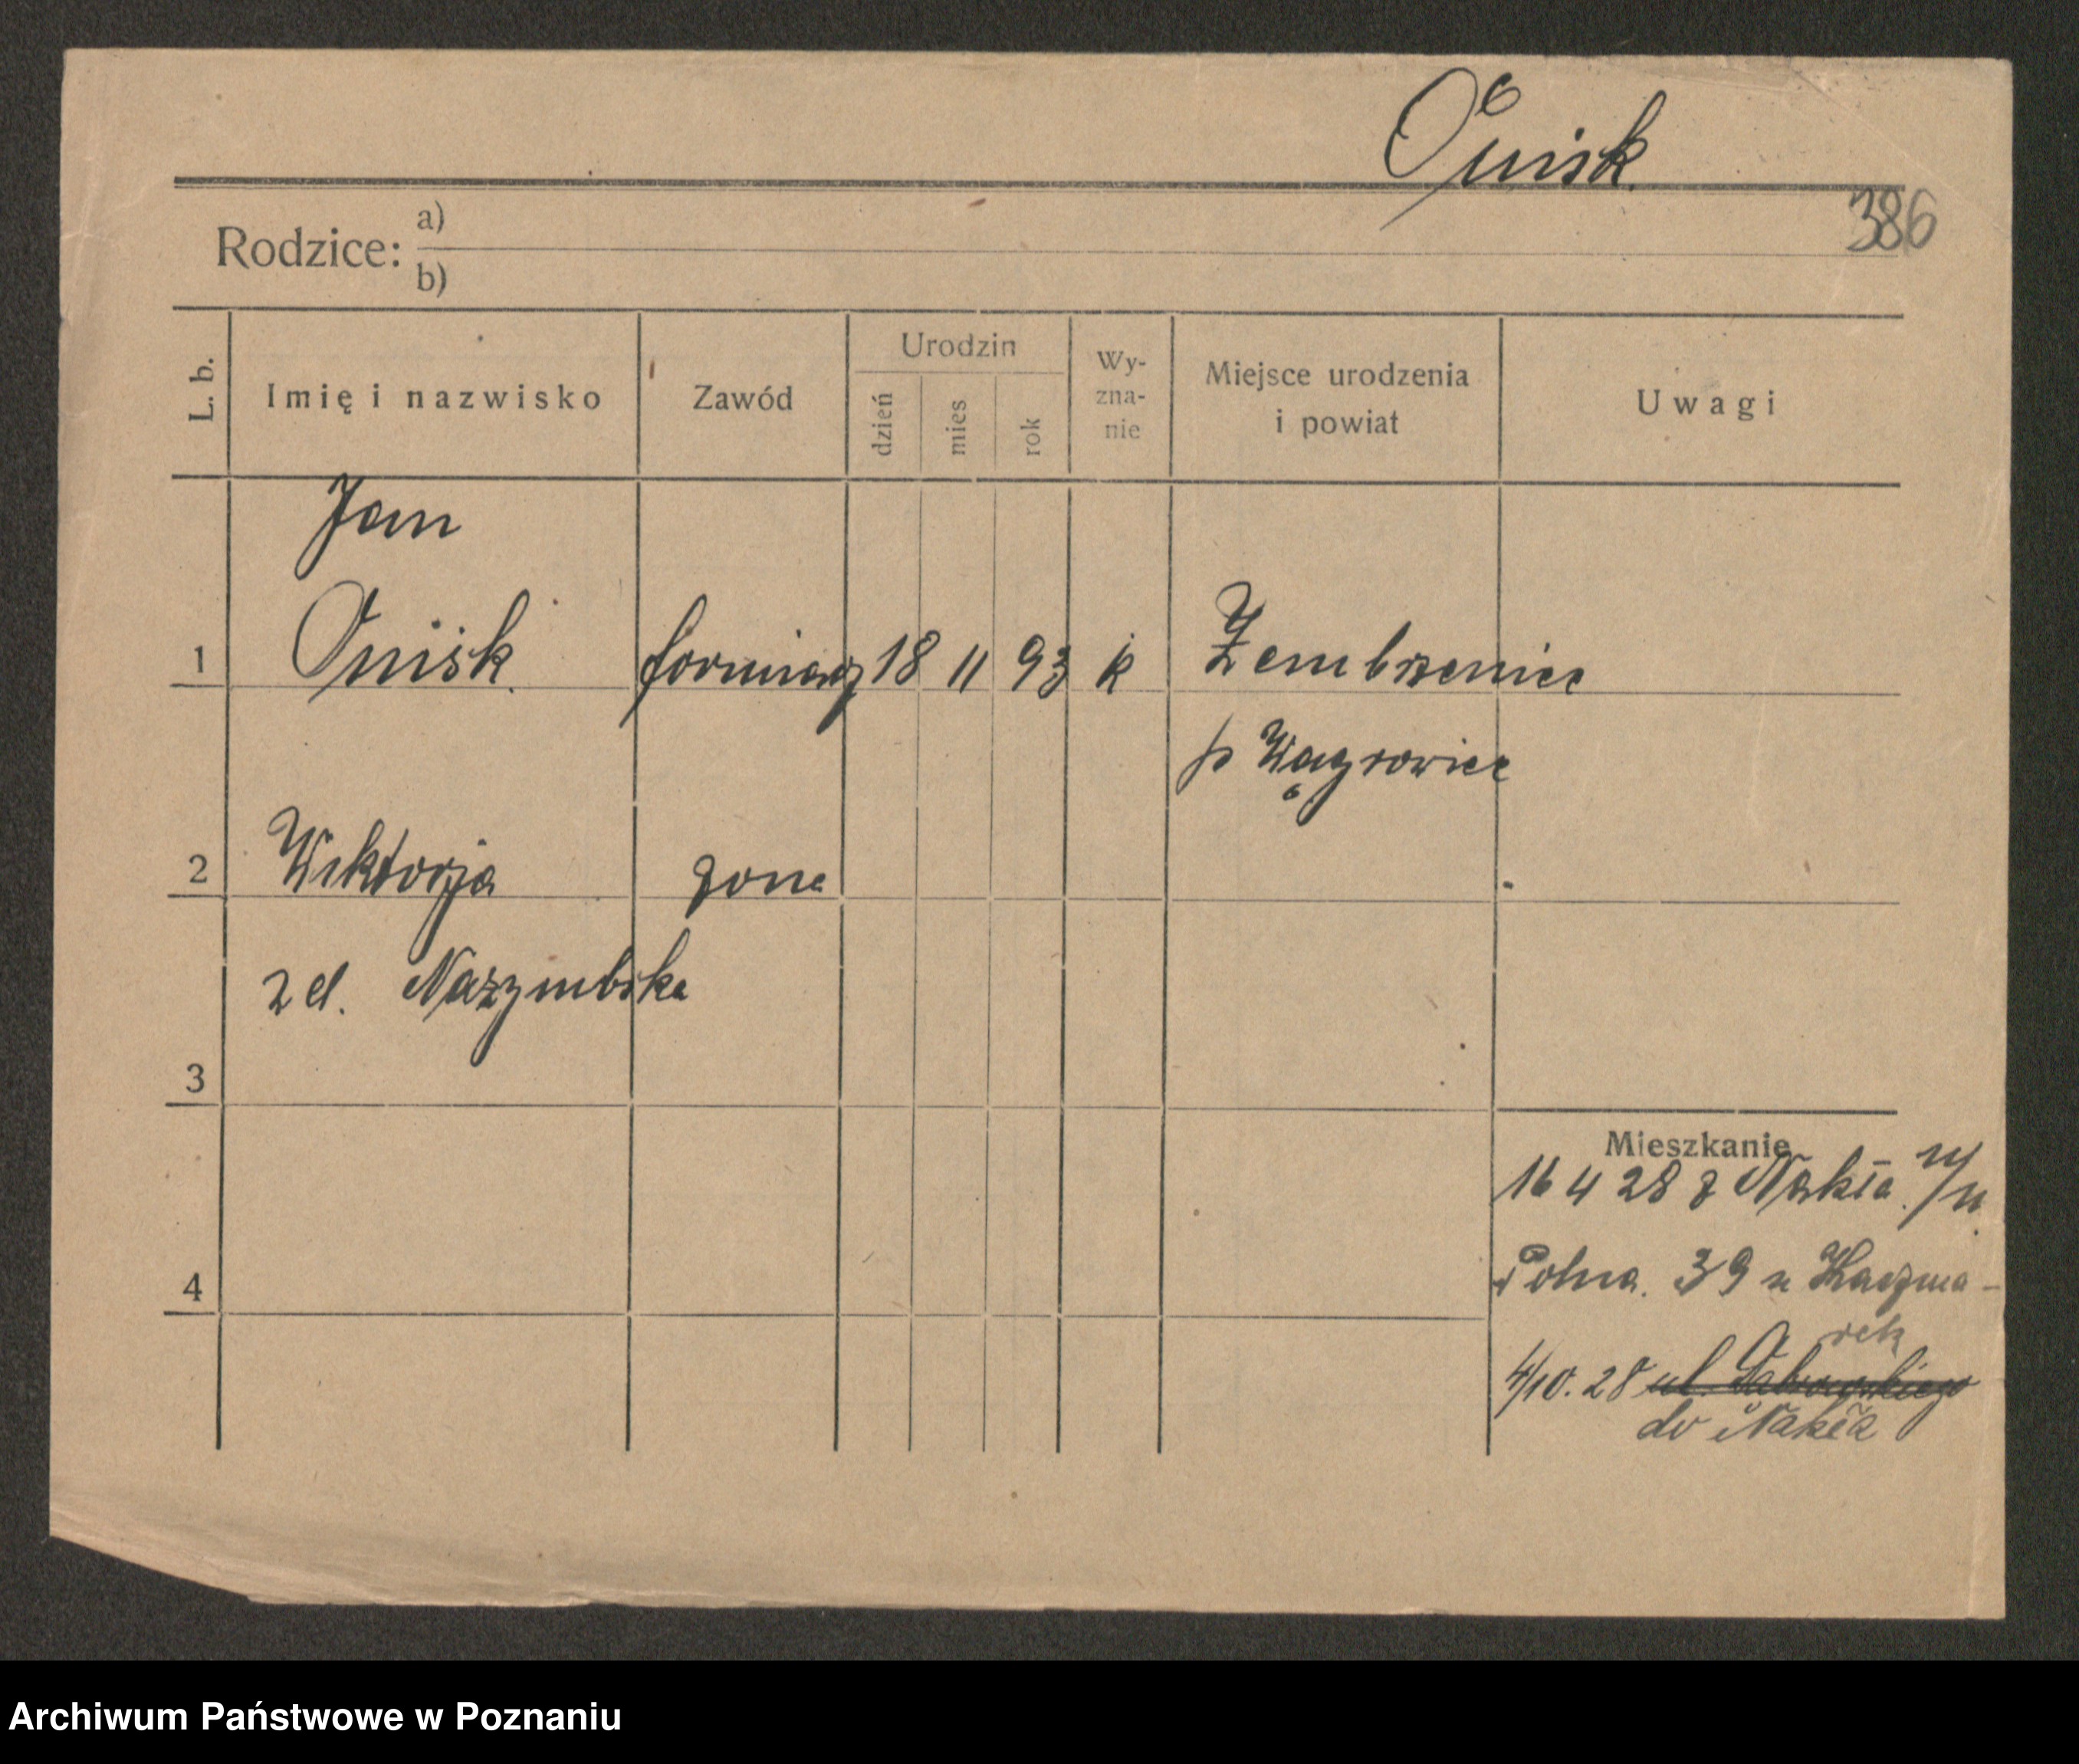 Onisk
386
Rodzice: a)
b)
L. b.
Imię i nazwisko
Zawód
Urodzin
dzień
mies
rok
Wy-
zna-
nie
Miejsce urodzenia
i powiat
Uwagi
Jan
1 Onisk. 18 11 93 k
p Wągrowiec
2 Wiktorja żona
zd.
3
4
Mieszkanie
16 4 28 z Nakła
Polna. 39 u Kaczma-
rek
4/10. 28 ul. Dąbrowskiego
do Nakła
Archiwum Państwowe w Poznaniu